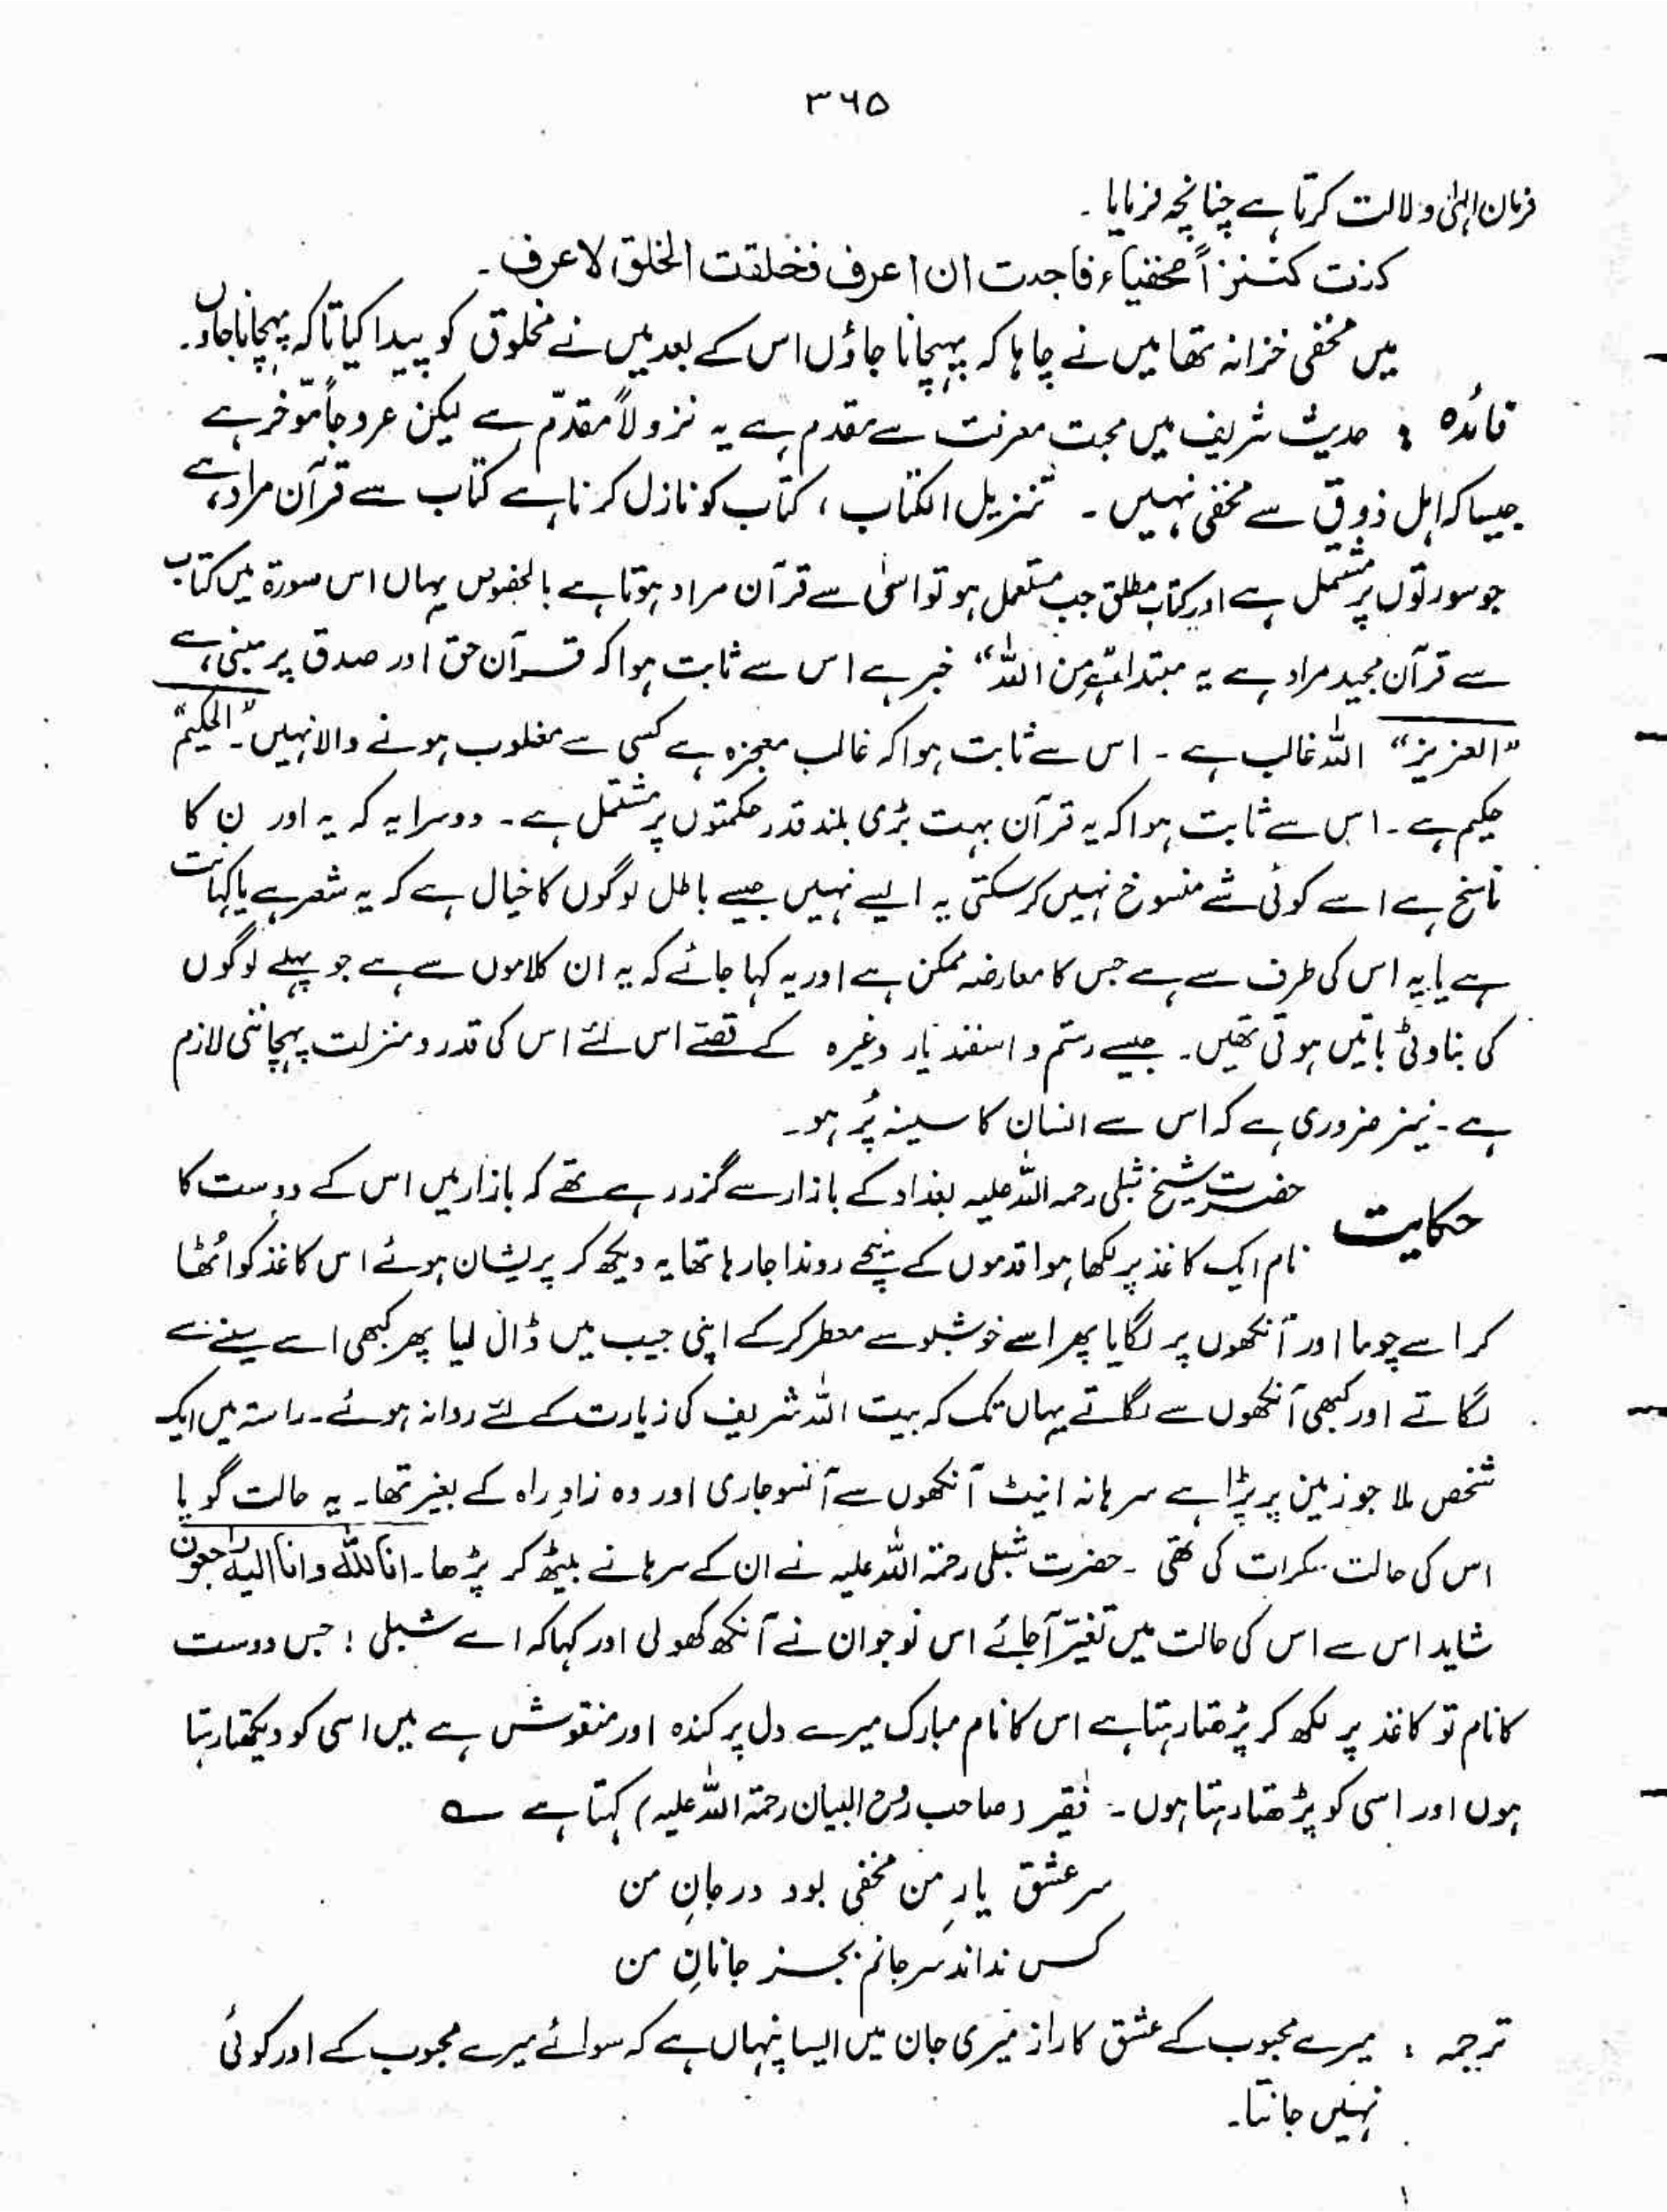 ۳۶۵
فرمان الہٰی دلالت کرتا ہے چنانچہ فرمایا ۔
کنت کنزاً مخفیاء فاجدت ان اعرف فخلقت الخلق لاعرف ۔
میں مخفی خزانہ تھا میں نے چاہا کہ پہچانا جاؤں اس کے بعد میں نے مخلوق کو پیدا کیا تاکہ پہچانا جاؤں ۔
فائدہ : حدیث شریف میں محبت معرفت سے مقدم ہے یہ نزولاً مقدّم ہے لیکن عروجاً مؤخر ہے
جیسا کہ اہل ذوق سے مخفی نہیں ۔ تنزیل الکتاب ، کتاب کو نازل کرنا ہے کتاب سے قرآن مراد ہے ،
جو سورتوں پر مشتمل ہے اور کتاب مطلق جب مستعمل ہو تو اسی سے قرآن مراد ہوتا ہے بالخصوص یہاں اس سورۃ میں کتاب
سے قرآن مجید مراد ہے یہ مبتدا ہے من اللّٰہ“ خبر ہے اس سے ثابت ہوا کہ قرآن حق اور صدق پر مبنی ہے ،
”العزیز“ اللّٰہ غالب ہے ۔ اس سے ثابت ہوا کہ غالب معجزہ ہے کسی سے مغلوب ہونے والا نہیں ۔ ”الحکیم“
حکیم ہے ۔ اس سے ثابت ہوا کہ یہ قرآن بہت بڑی بلند قدر حکمتوں پر مشتمل ہے ۔ دوسرا یہ کہ یہ اور ں کا
ناسخ ہے اسے کوئی شے منسوخ نہیں کرسکتی یہ ایسے نہیں جیسے باطل لوگوں کا خیال ہے کہ یہ شعر ہے یا کہانت
ہے یا یہ اس کی طرف سے ہے جس کا معارضہ ممکن ہے اور یہ کہا جائے کہ یہ ان کلاموں سے ہے جو پہلے لوگوں
کی بناوٹی باتیں ہوتی تھیں ۔ جیسے رستم و اسفند یار وغیرہ کے قصّے اس لئے اس کی قدر و منزلت پہچاننی لازم
ہے ۔ نیز ضروری ہے کہ اس سے انسان کا سینہ پُر ہو ۔
حکایت حضرت شیخ شبلی رحمہ اللّٰہ علیہ بغداد کے بازار سے گزر رہے تھے کہ بازار میں اس کے دوست کا
نام ایک کاغذ پر لکھا ہوا قدموں کے نیچے روندا جا رہا تھا یہ دیکھ کر پریشان ہوئے اس کاغذ کو اُٹھا
کر اسے چوما اور آنکھوں پر لگایا پھر اسے خوشبو سے معطر کرکے اپنی جیب میں ڈال لیا پھر کبھی اسے سینے سے
لگاتے اور کبھی آنکھوں سے لگاتے یہاں تک کہ بیت اللّٰہ شریف کی زیارت کے لئے روانہ ہوئے ۔ راستہ میں ایک
شخص ملا جو زمین پر پڑا ہے سرہانہ اینٹ آنکھوں سے آنسو جاری اور وہ زادِ راہ کے بغیر تھا ۔ یہ حالت گویا
اس کی حالت سکرات کی تھی ۔ حضرت شبلی رحمۃ اللّٰہ علیہ نے ان کے سرہانے بیٹھ کر پڑھا ۔ انا للّٰہ و انا الیہ راجعون
شاید اس سے اس کی حالت میں تغیّر آجائے اس نوجوان نے آنکھ کھولی اور کہا کہ اے شبلی ! جس دوست
کا نام تو کاغذ پر لکھ کر پڑھتا رہتا ہے اس کا نام مبارک میرے دل پر کندہ اور منقوش ہے میں اسی کو دیکھتا رہتا
ہوں اور اسی کو پڑھتا رہتا ہوں ۔ فقیر ( صاحب روح البیان رحمۃ اللّٰہ علیہ ) کہتا ہے ؎
سر عشق یارِ من مخفی بود در جانِ من
کس نداند سر جانم بجز جانانِ من
ترجمہ : میرے محبوب کے عشق کا راز میری جان میں ایسا پنہاں ہے کہ سوائے میرے محبوب کے اور کوئی
نہیں جانتا ۔